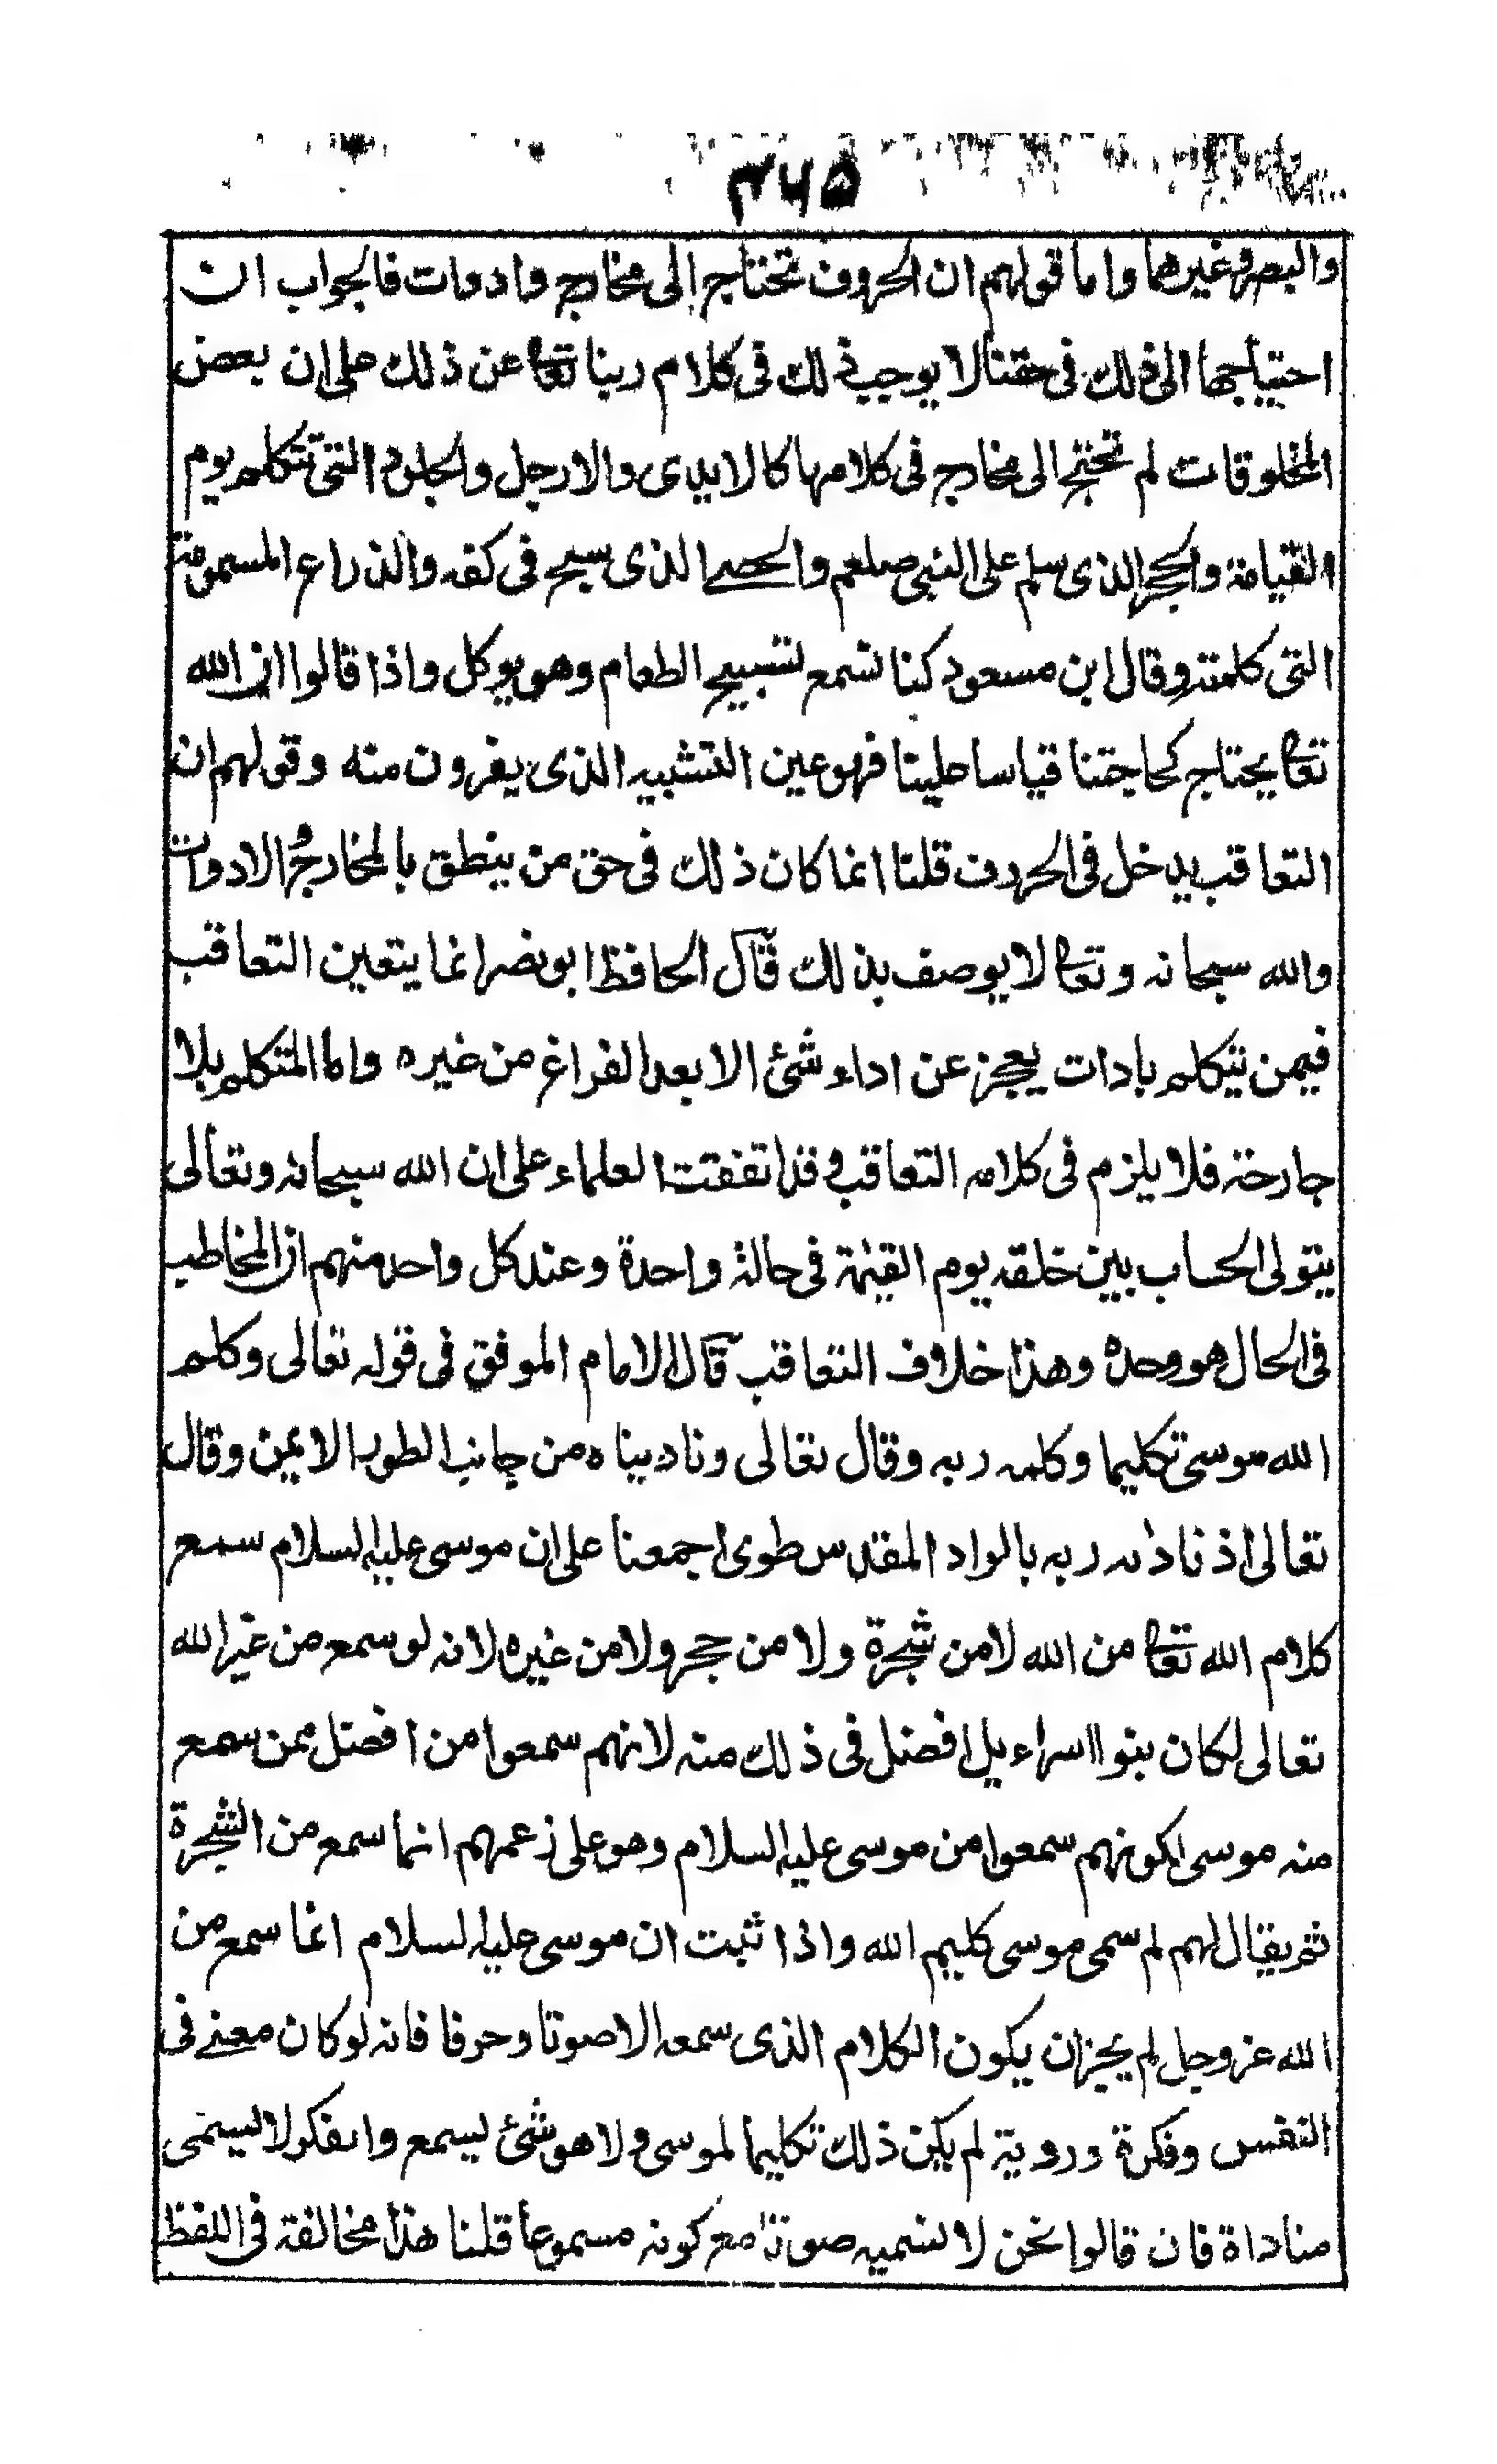 ۳۶۵
والبصر وغيرهما واما قولهم ان الحروف تحتاج الى مخارج وادوات فالجواب ان
احتياجها الى ذلك فى حقنا لا يوجب ذلك فى كلام ربنا تعا عن ذلك على ان بعض
المخلوقات لم تحتج الى مخارج فى كلامها كالايدى والارجل والجلود التى تتكلم يوم
القيامة والحجر الذى سلم على النبى صلعم والحصے الذى سبح فى كفه والذراع المسمومة
التى كلمته وقال ابن مسعود كنا نسمع تسبيح الطعام وهو يوكل واذا قالوا ان الله
تعا يحتاج كحاجتنا قياسا علينا فهو عين التشبيه الذى يفرون منه وقولهم ان
التعاقب يدخل فى الحروف قلنا انما كان ذلك فى حق من ينطق بالمخارج والادوات
والله سبحانه وتعا لا يوصف بذلك قال الحافظ ابو نصر انما يتعين التعاقب
فيمن يتكلم بادات يعجز عن اداء شئ الا بعد الفراغ من غيره واما المتكلم بلا
جارحة فلا يلزم فى كلامه التعاقب وقد اتفقت العلماء على ان الله سبحانه وتعالى
يتولى الحساب بين خلقه يوم القيٰمة فى حالة واحدة وعند كل واحد منهم ان المخاطب
فى الحال هو وحده وهذا خلاف التعاقب قال الامام الموفق فى قوله تعالى وكلم
الله موسى تكليما وكلمه ربه وقال تعالى وناديناه من جانب الطور الايمن وقال
تعالى اذ ناداه ربه بالواد المقدس طوى اجمعنا على ان موسى عليه السلام سمع
كلام الله تعا من الله لا من شجرة ولا من حجر ولا من غيره لانه لو سمع من غير الله
تعالى لكان بنو اسراءيل افضل فى ذلك منه لانهم سمعوا من افضل ممن سمع
منه موسى لكونهم سمعوا من موسى عليه السلام وهو على زعمهم انما سمع من الشجرة
ثم يقال لهم لم سمى موسى كليم الله واذا ثبت ان موسى عليه السلام انما سمع من
الله عز وجل لم يجز ان يكون الكلام الذى سمعه الا صوتا وحرفا فانه لو كان معنے فى
النفس وفكرة وروية لم يكن ذلك تكليما لموسى ولا هو شئ يسمع والفكر لا يسمى
مناداة فان قالوا نحن لا نسميه صوتا مع كونه مسموعا قلنا هذا مخالفة فى اللفظ